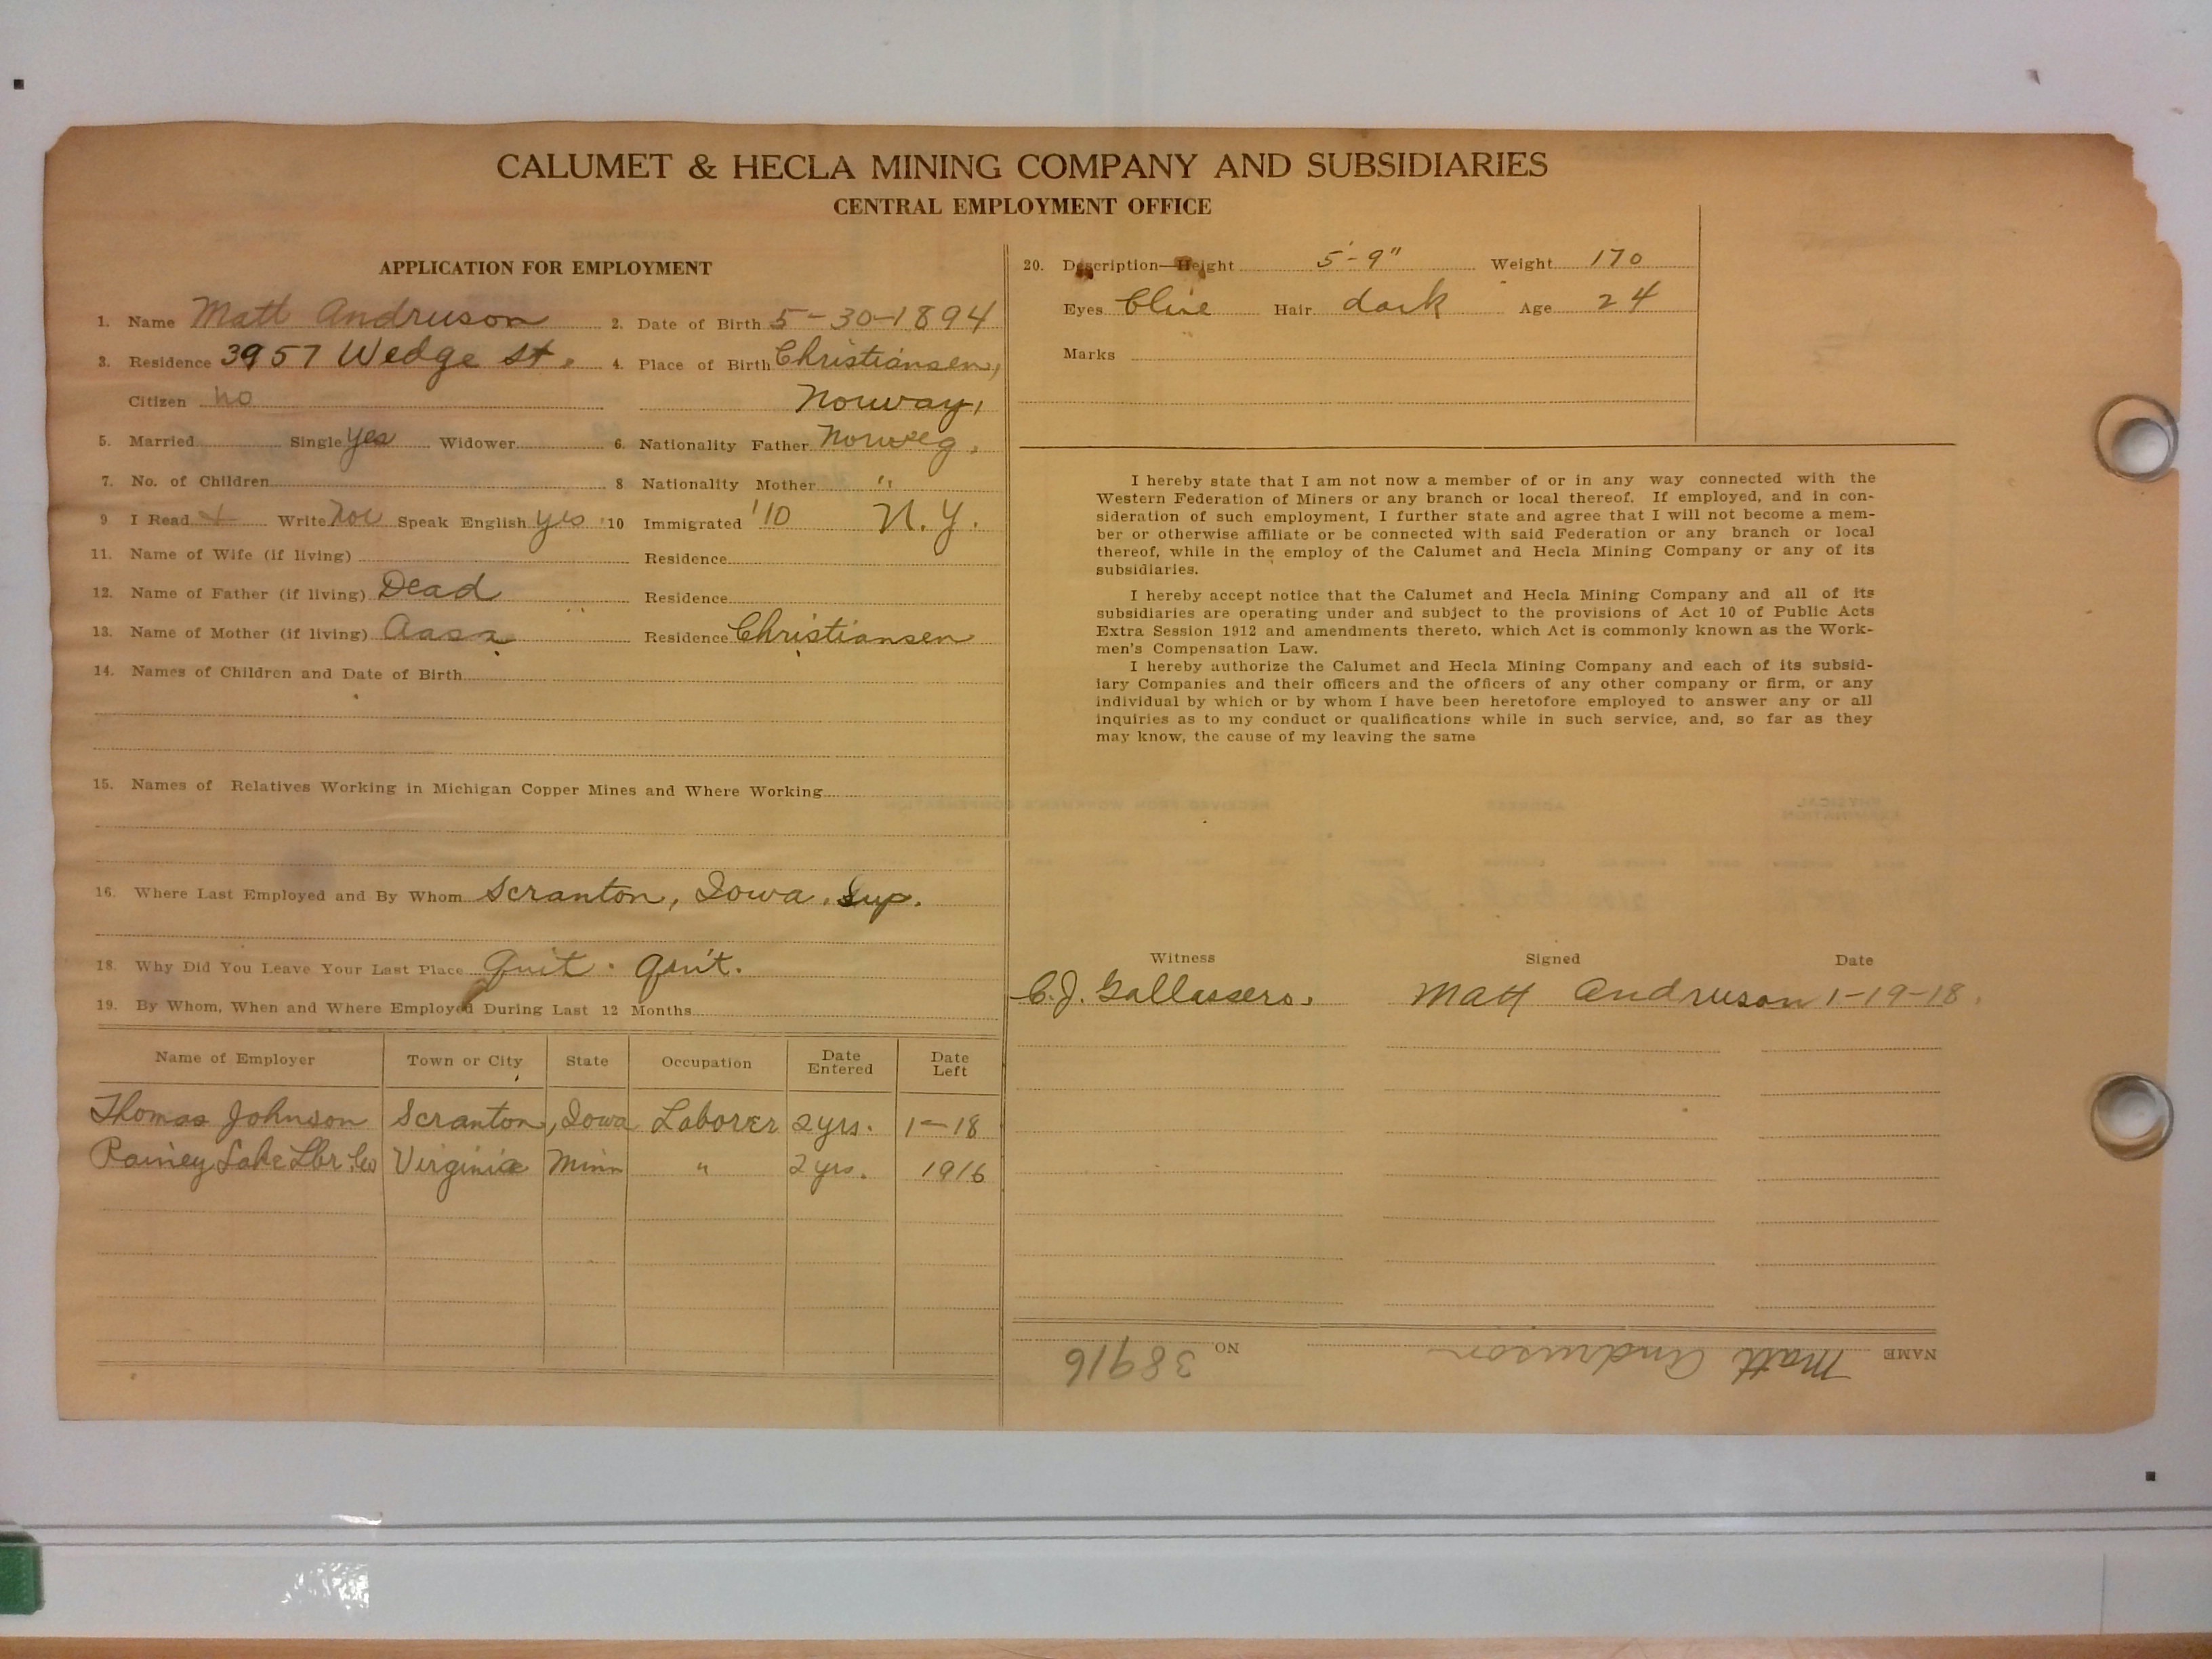 CALUMET & HECLA MINING COMPANY AND SUBSIDIARIES
CENTRAL EMPLOYMENT OFFICE
APPLICATION FOR EMPLOYMENT
1. Name Matt Andruson 2. Date of Birth 5-30-1894
3. Residence 3957 Wedge St. 4. Place of Birth Christiansen,
Citizen no Norway,
5. Married Single yes Widower 6. Nationality Father Norweg.
7. No. of Children 8 Nationality Mother "
9 I Read + Write Nor Speak English yes 10 Immigrated '10 N.Y.
11. Name of Wife (if living) Residence
12. Name of Father (if living) Dead Residence
13. Name of Mother (if living) Aasa Residence Christiansen
14. Names of Children and Date of Birth
15. Names of Relatives Working in Michigan Copper Mines and Where Working
16. Where Last Employed and By Whom Scranton, Iowa. Sup.
18. Why Did You Leave Your Last Place Quit. Quit.
19. By Whom, When and Where Employed During Last 12 Months
Name of Employer Town or City State Occupation Date Entered Date Left
Thomas Johnson Scranton, Iowa Laborer 2 yrs. 1-18
Rainey Lake Lbr. Co Virginia Minn " 2 yrs. 1916
20. Description—Height 5'-9" Weight 170
Eyes Blue Hair dark Age 24
Marks
I hereby state that I am not now a member of or in any way connected with the
Western Federation of Miners or any branch or local thereof. If employed, and in con-
sideration of such employment, I further state and agree that I will not become a mem-
ber or otherwise affiliate or be connected with said Federation or any branch or local
thereof, while in the employ of the Calumet and Hecla Mining Company or any of its
subsidiaries.
I hereby accept notice that the Calumet and Hecla Mining Company and all of its
subsidiaries are operating under and subject to the provisions of Act 10 of Public Acts
Extra Session 1912 and amendments thereto, which Act is commonly known as the Work-
men's Compensation Law.
I hereby authorize the Calumet and Hecla Mining Company and each of its subsid-
iary Companies and their officers and the officers of any other company or firm, or any
individual by which or by whom I have been heretofore employed to answer any or all
inquiries as to my conduct or qualifications while in such service, and, so far as they
may know, the cause of my leaving the same
Witness Signed Date
C.J. Matt Andruson 1-19-18.
NAME Matt Andruson NO. 38916